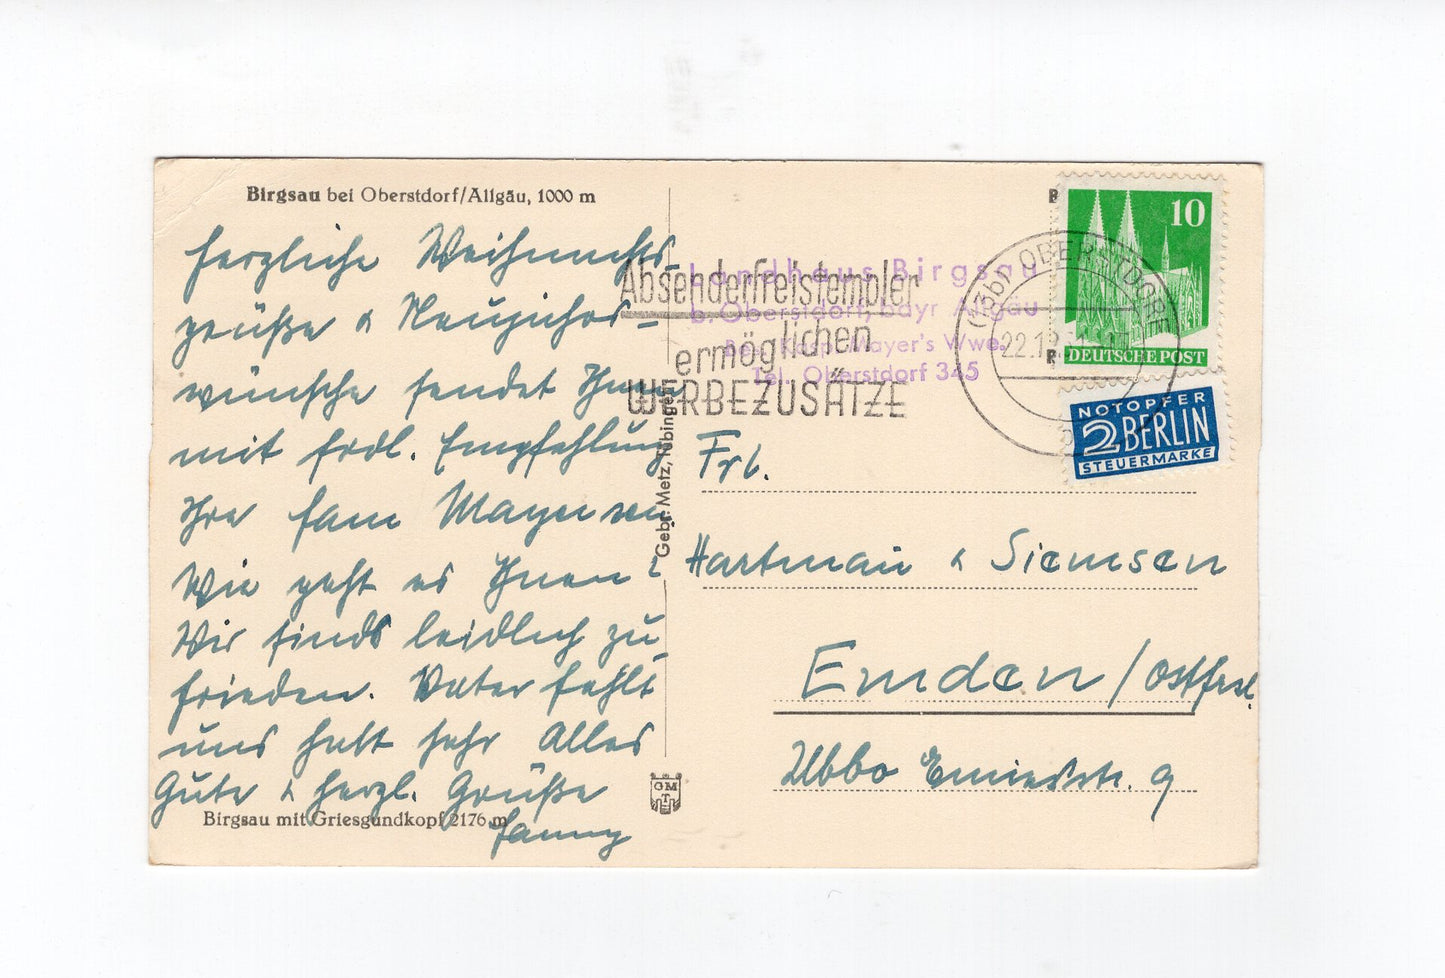 Birgsau bei Oberstdorf/Allgäu, 1000 m
herzliche Weihnachts-
grüße & Neujahrs-
wünsche sendet Ihnen
mit frdl. Empfehlung
Ihre Fam Mayer
Wie geht es Ihnen?
Wir sinds leidlich zu-
frieden. Vater fehlt
uns halt sehr Alles
Gute & herzl. Grüße
Fanny
Birgsau mit Griesgundkopf 2176 m
Gebr. Metz, Tübingen
GMT
Absenderfreistempler
ermöglichen
WERBEZUSÄTZE
Landhaus Birgsau
b. Oberstdorf, bayr Allgäu
Bes. Kasp. Mayer's Wwe.
Tel. Oberstdorf 345
(13b) OBERSTDORF
22.12.
10
DEUTSCHE POST
NOTOPFER
2 BERLIN
STEUERMARKE
Frl.
Hartmann & Siemsen
Emden/Ostfrsl.
Ubbo Emiusstr. 9